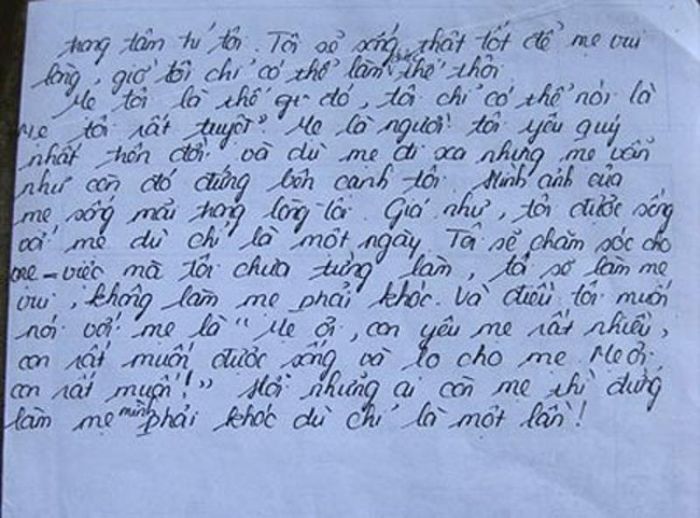 trong tâm trí tôi. Tôi sẽ sống thật tốt để mẹ vui
lòng, giờ tôi chỉ có thể làm thế thôi.
Mẹ tôi là thế đó, tôi chỉ có thể nói là
"Mẹ tôi rất tuyệt". Mẹ là người tôi yêu quý
nhất trên đời. Và dù mẹ đi xa nhưng mẹ vẫn
như còn đó đứng bên cạnh tôi. Hình ảnh của
mẹ sống mãi trong lòng tôi. Giá như, tôi được sống
với mẹ dù chỉ là một ngày. Tôi sẽ chăm sóc cho
mẹ - việc mà tôi chưa từng làm, tôi sẽ làm mẹ
vui, không làm mẹ phải khóc. Và điều tôi muốn
nói với mẹ là "Mẹ ơi, con yêu mẹ rất nhiều,
con rất muốn được sống và lo cho mẹ. Mẹ ơi
con rất muốn!" Hỡi những ai còn mẹ thì đừng
làm mẹ mình phải khóc dù chỉ là một lần!